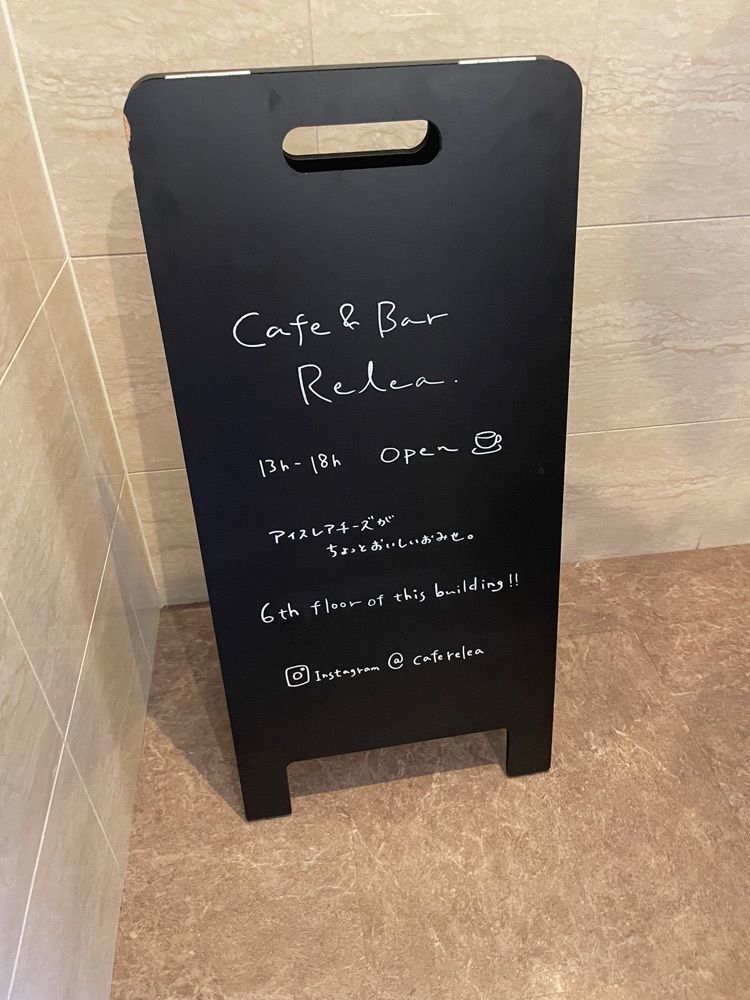 Cafe & Bar
Relea.
13h - 18h Open
アイスレアチーズが
ちょっとおいしいおみせ。
6th floor of this building!!
Instagram @ caferelea